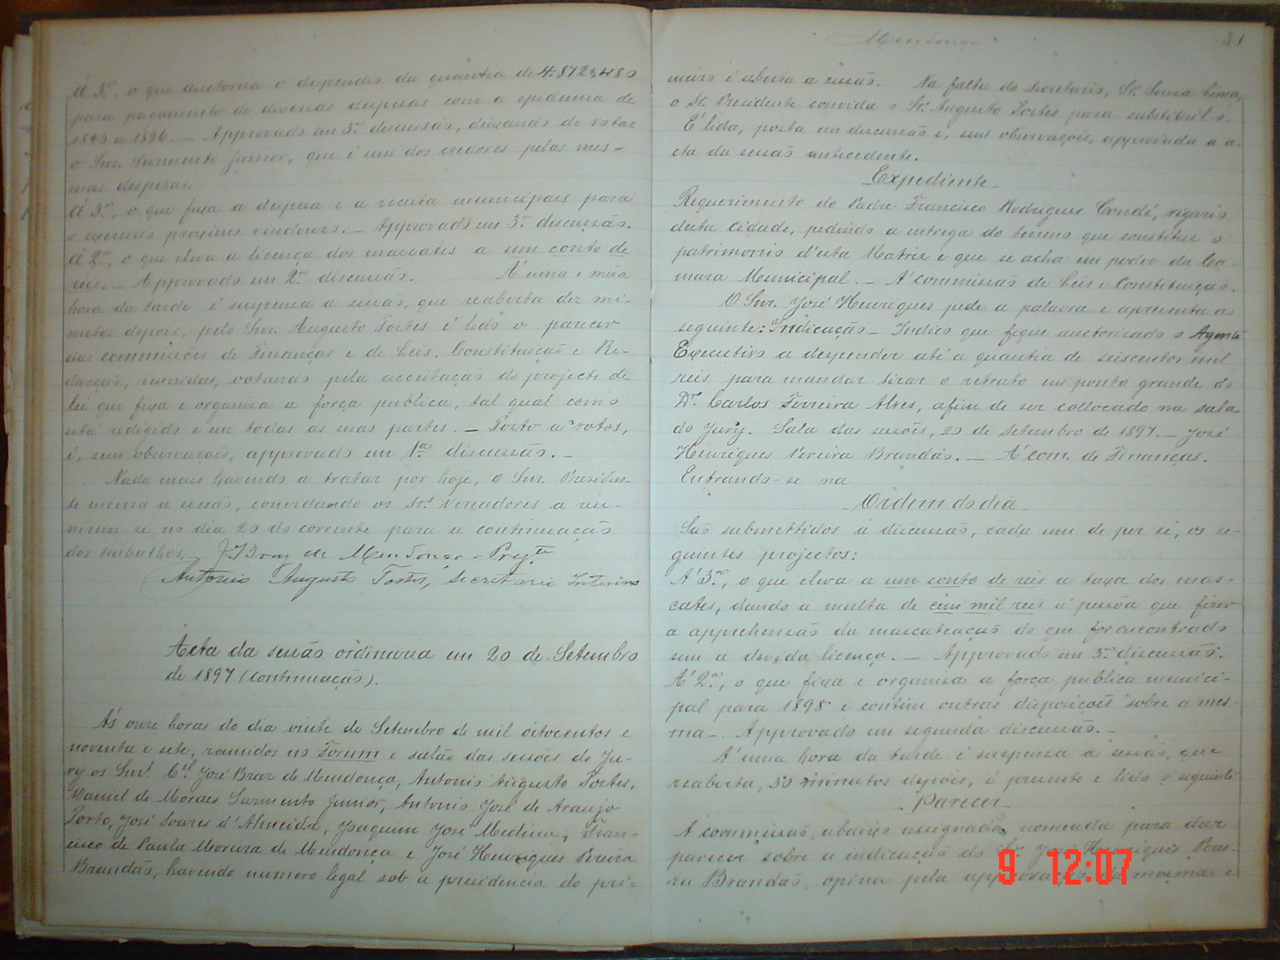 á 3ª, o que auctorisa o dispendio da quantia de 4:812$480
para pagamento de diversas despesas com a epidemia de
1895 a 1896. — Approvado em 3ª discussão, deixando de votar
o Snr. Sarmento Junior, que é um dos credores pelas mes-
mas despesas.
á 3ª, o que fixa a despesa e a receita municipaes para
o exercicio proximo vindouro. — Approvado em 3ª discussão.
á 2ª, o que eleva a licença dos mascates a um conto de
reis. — Approvado em 2ª discussão. Á uma e meia
hora da tarde é suspensa a sessão, que reaberta dez mi-
nutos depois, pelo Snr. Augusto Fortes é lido o parecer
das commissões de Finanças e de Leis, Constituição e Re-
dacção, reunidas, votando pela acceitação do projecto de
lei que fixa e organisa a força publica, tal qual como
está redigido e em todas as suas partes. — Posto a votos,
é, sem observação, approvado em 1ª discussão. —
Nada mais havendo a tratar por hoje, o Snr. Presiden-
te encerra a sessão, convidando os Srs. Vereadores a reu-
nirem-se no dia 20 do corrente para a continuação
dos trabalhos. J. Braz de Mendonça - Presᵗᵉ
Antonio Augusto Fortes, Secretario Interino
Acta da sessão ordinaria em 20 de Setembro
de 1897 (Continuação).
Ás onze horas do dia vinte de Setembro de mil oitocentos e
noventa e sete, reunidos no Forum e salão das sessões do Ju-
ry os Snrs. Cel. José Braz de Mendonça, Antonio Augusto Fortes,
Daniel de Moraes Sarmento Junior, Antonio José de Araujo
Porto, José Soares d'Almeida, Joaquim José Medina, Fran-
cisco de Paula Moreira de Mendonça e José Henriques Pereira
Brandão, havendo numero legal sob a presidencia do pri-
Mendonça
21
meiro é aberta a sessão. Na falta do Secretario, Sr. Serra Lima,
o Sr. Presidente convida o Sr. Augusto Fortes para substituil-o.
E lida, posta em discussão e, sem observações, approvada a a-
cta da sessão antecedente.
Expediente
Requerimento do Padre Francisco Rodrigues Condé, vigario
desta cidade, pedindo a entrega do terreno que constitue o
patrimonio d'esta Matriz e que se acha em poder da Ca-
mara Municipal. — Á commissão de Leis e Constituição.
O Snr. José Henriques pede a palavra e apresenta a
seguinte: Indicação — Indico que fique auctorisado o Agente
Executivo a despender até a quantia de seiscentos mil
reis para mandar tirar o retrato em ponto grande do
Dr. Carlos Ferreira Alves, afim de ser collocado na sala
do Jury. Sala das sessões, 20 de Setembro de 1897. — José
Henriques Pereira Brandão. — Á com. de Finanças.
Entrando-se na
Ordem do dia
São submettidos á discussão, cada um de per si, os se-
guintes projectos:
Á 3ª, o que eleva a um conto de reis a taxa dos mas-
cates, dando a multa de cem mil reis á pessôa que fizer
a apprehensão da mascateação do que for encontrado
sem a devida licença. — Approvado em 3ª discussão.
Á 2ª, o que fixa e organisa a força publica munici-
pal para 1898 e contem outras disposições sobre a mes-
ma —. Approvado em segunda discussão. —
Á uma hora da tarde é suspensa a sessão, que
reaberta, 30 minutos depois, é presente e lido o seguinte
Parecer
A commissão, abaixo assignada, nomeada para dar
parecer sobre a indicação do Sr. José Henriques Perei-
ra Brandão, opina pela approvação da mesma e
9 12:07